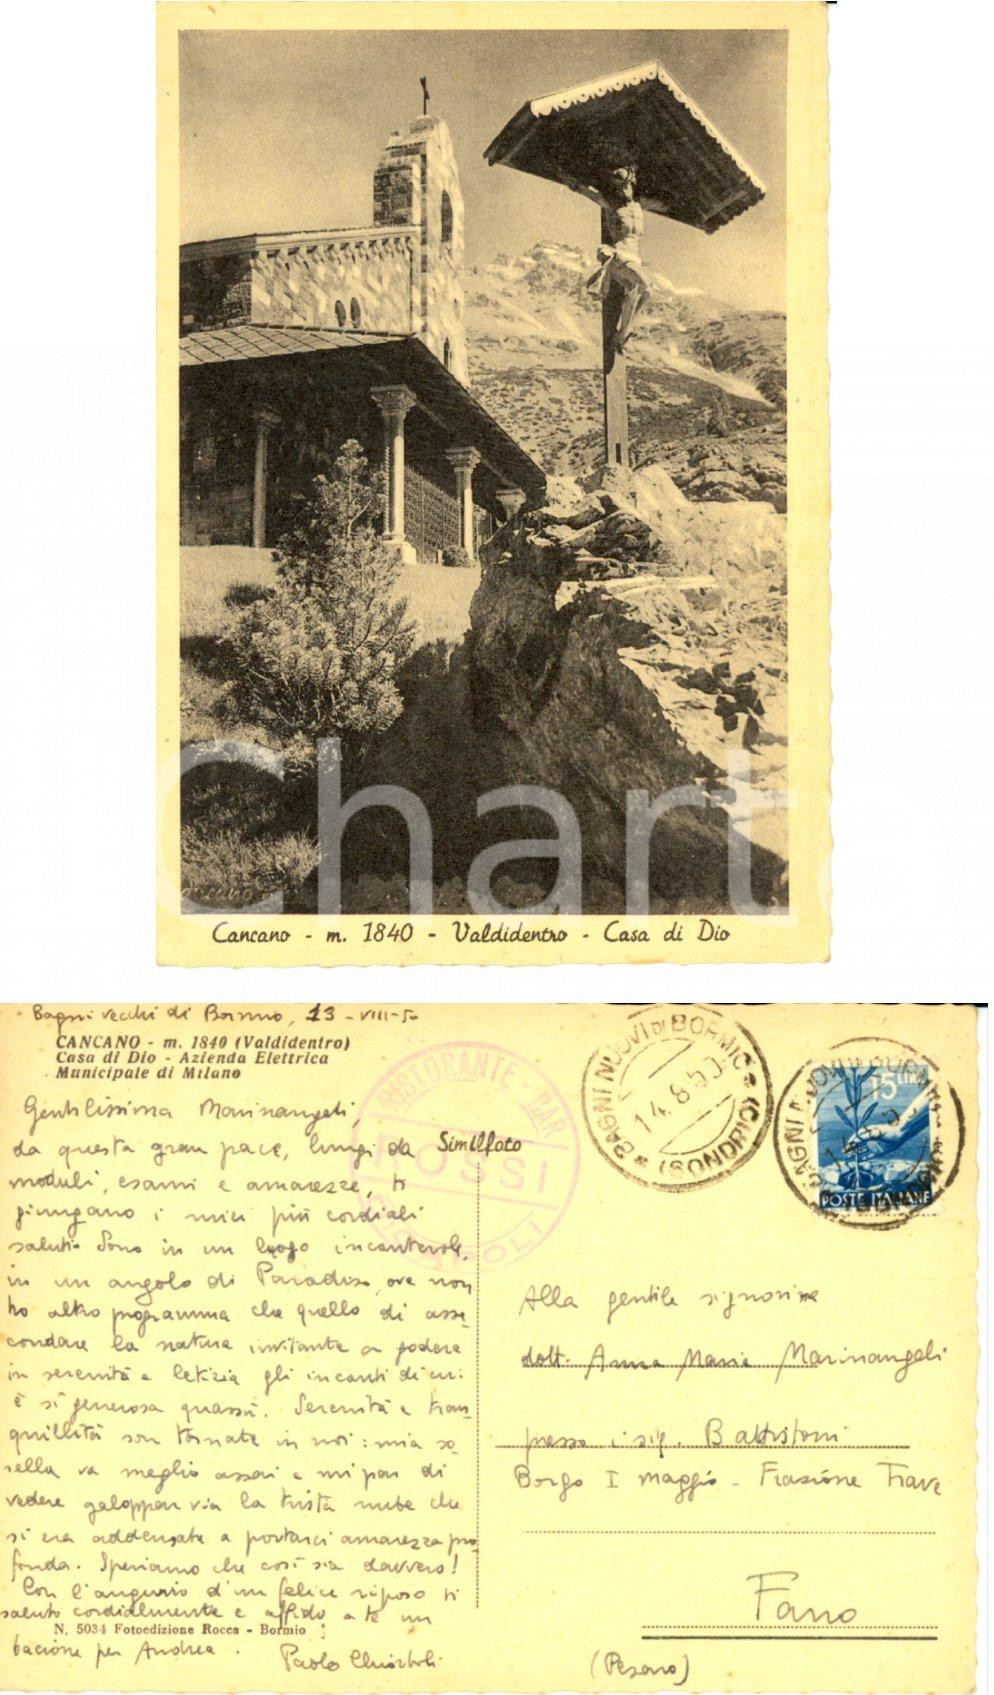 Cancano - m. 1840 - Valdidentro - Casa di Dio
Chart
Bagni vecchi di Bormio, 13-VIII-50
CANCANO - m. 1840 (Valdidentro)
Casa di Dio - Azienda Elettrica
Municipale di Milano
Gentilissima Marinangeli,
da questa gran pace, lungi da
moduli, esami e amarezze, ti
giungano i miei più cordiali
saluti. Sono in un luogo incantevole,
in un angolo di Paradiso, ove non
ho altro programma che quello di asse-
condare la natura invitante a godere
in serenità e letizia gli incanti di cui
è sì generosa quassù. Serenità e tran-
quillità son tornate in noi: mia so-
rella va meglio assai e mi par di
vedere galoppar via la trista nube che
si era addensata a portarci amarezza pro-
fonda. Speriamo che così sia davvero!
Con l'augurio d'un felice riposo ti
saluto cordialmente e affido a te un
N. 5034 Fotoedizione Rocca - Bormio
bacione per Andrea.
Paolo
Similfoto
RISTORANTE - BAR
ROSSI
BAGNI NUOVI DI BORMIO
14.8.50
(SONDRIO)
15 LIRE
POSTE ITALIANE
Alla gentile signorina
dott. Anna Maria Marinangeli
presso i sig. Battistoni
Borgo I Maggio - Frazione Trave
Fano
(Pesaro)